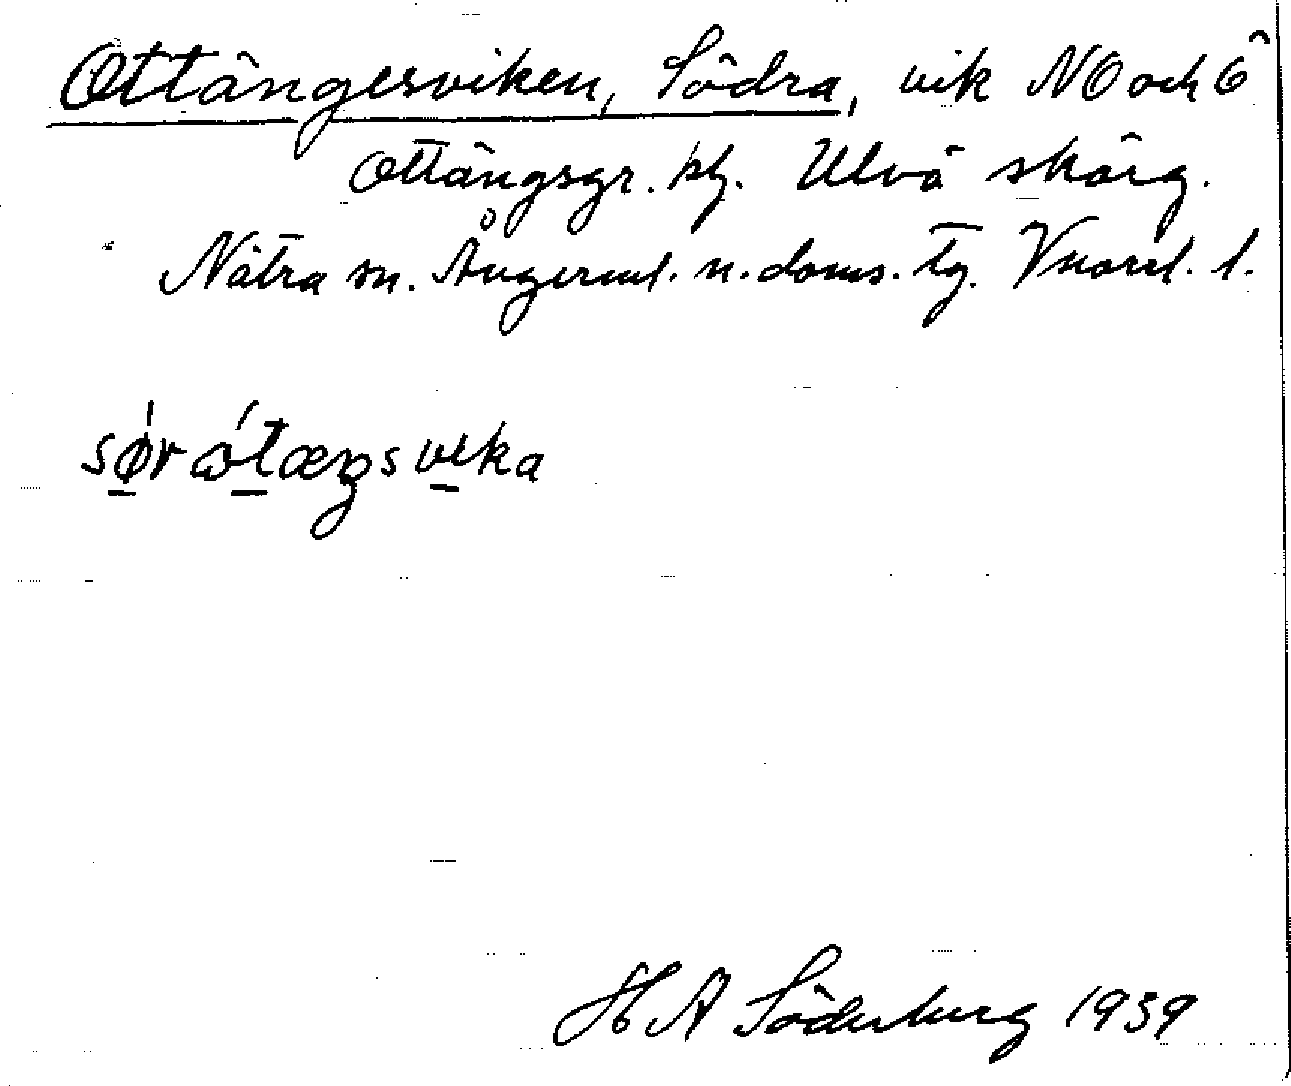 Ottängesviken, Södra, vik NO och Ö
Ottängsgr. pl. Ulvö skärg.
Nätra sn. Ångerml. n. doms. tg. Vnorrl. l.
sør ɷ́tæŋsvika
H A Söderberg 1939